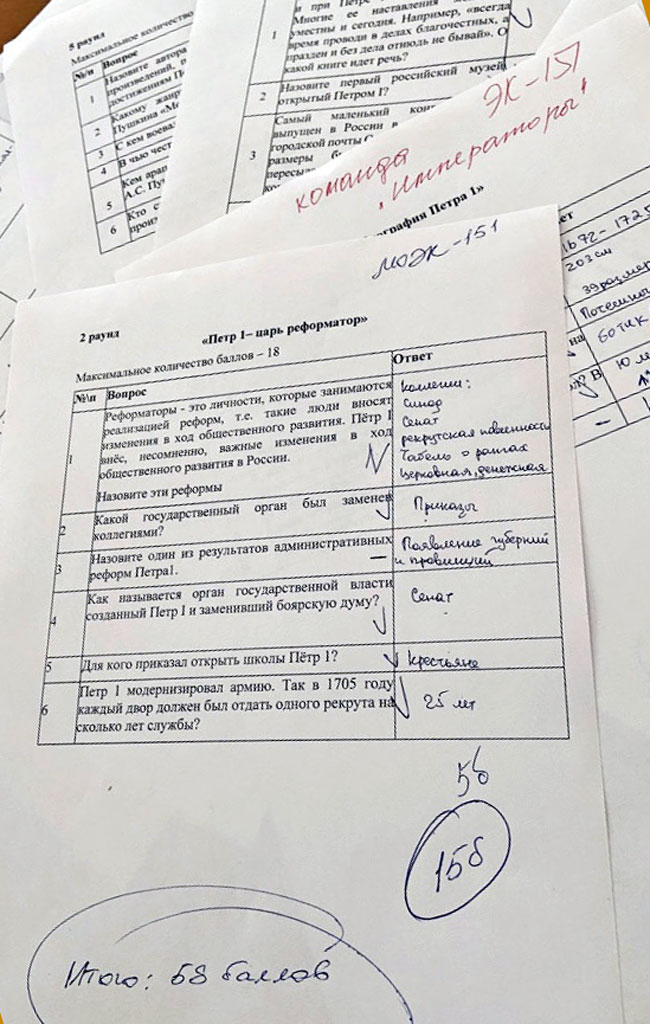 5 раунд
Максимальное количество
№/п Вопрос
1
Назовите автора
произведений, п
достижениям П
2
Какому жанр
Пушкина «М
3
С кем воева
4
В чью чест
5
Кем арап
А.С. Пу
6
Кто с
произ
и при Петре
Многие ее наставления
уместны и сегодня. Например, «всегда
время проводи в делах благочестных, а
празден и без дела отнюдь не бывай». О
какой книге идет речь?
1
2
Назовите первый российский музей,
открытый Петром I?
3
Самый маленький кон
выпущен в России в
городской почты С
размеры б
пересы
ЭК-151
команда
"Императоры"
ография Петра 1»
ет
1672-1725
203 см
39 размер
на
ботик
В
10 л
МОЭК-151
2 раунд
«Петр 1– царь реформатор»
Максимальное количество баллов – 18
№\п Вопрос Ответ
1
Реформаторы - это личности, которые занимаются
реализацией реформ, т.е. такие люди вносят
изменения в ход общественного развития. Пётр I
внёс, несомненно, важные изменения в ход
общественного развития в России.
Назовите эти реформы
Коллегии:
Синод
Сенат
рекрутская повинность
Табель о рангах
Церковная, денежная
2
Какой государственный орган был заменен
коллегиями?
Приказы
3
Назовите один из результатов административных
реформ Петра1.
Появление губерний
и провинций
4
Как называется орган государственной власти
созданный Петр I и заменивший боярскую думу?
Сенат
5
Для кого приказал открыть школы Пётр 1?
Крестьяне
6
Петр 1 модернизировал армию. Так в 1705 году
каждый двор должен был отдать одного рекрута на
сколько лет службы?
25 лет
5б
15б
Итого: 58 баллов